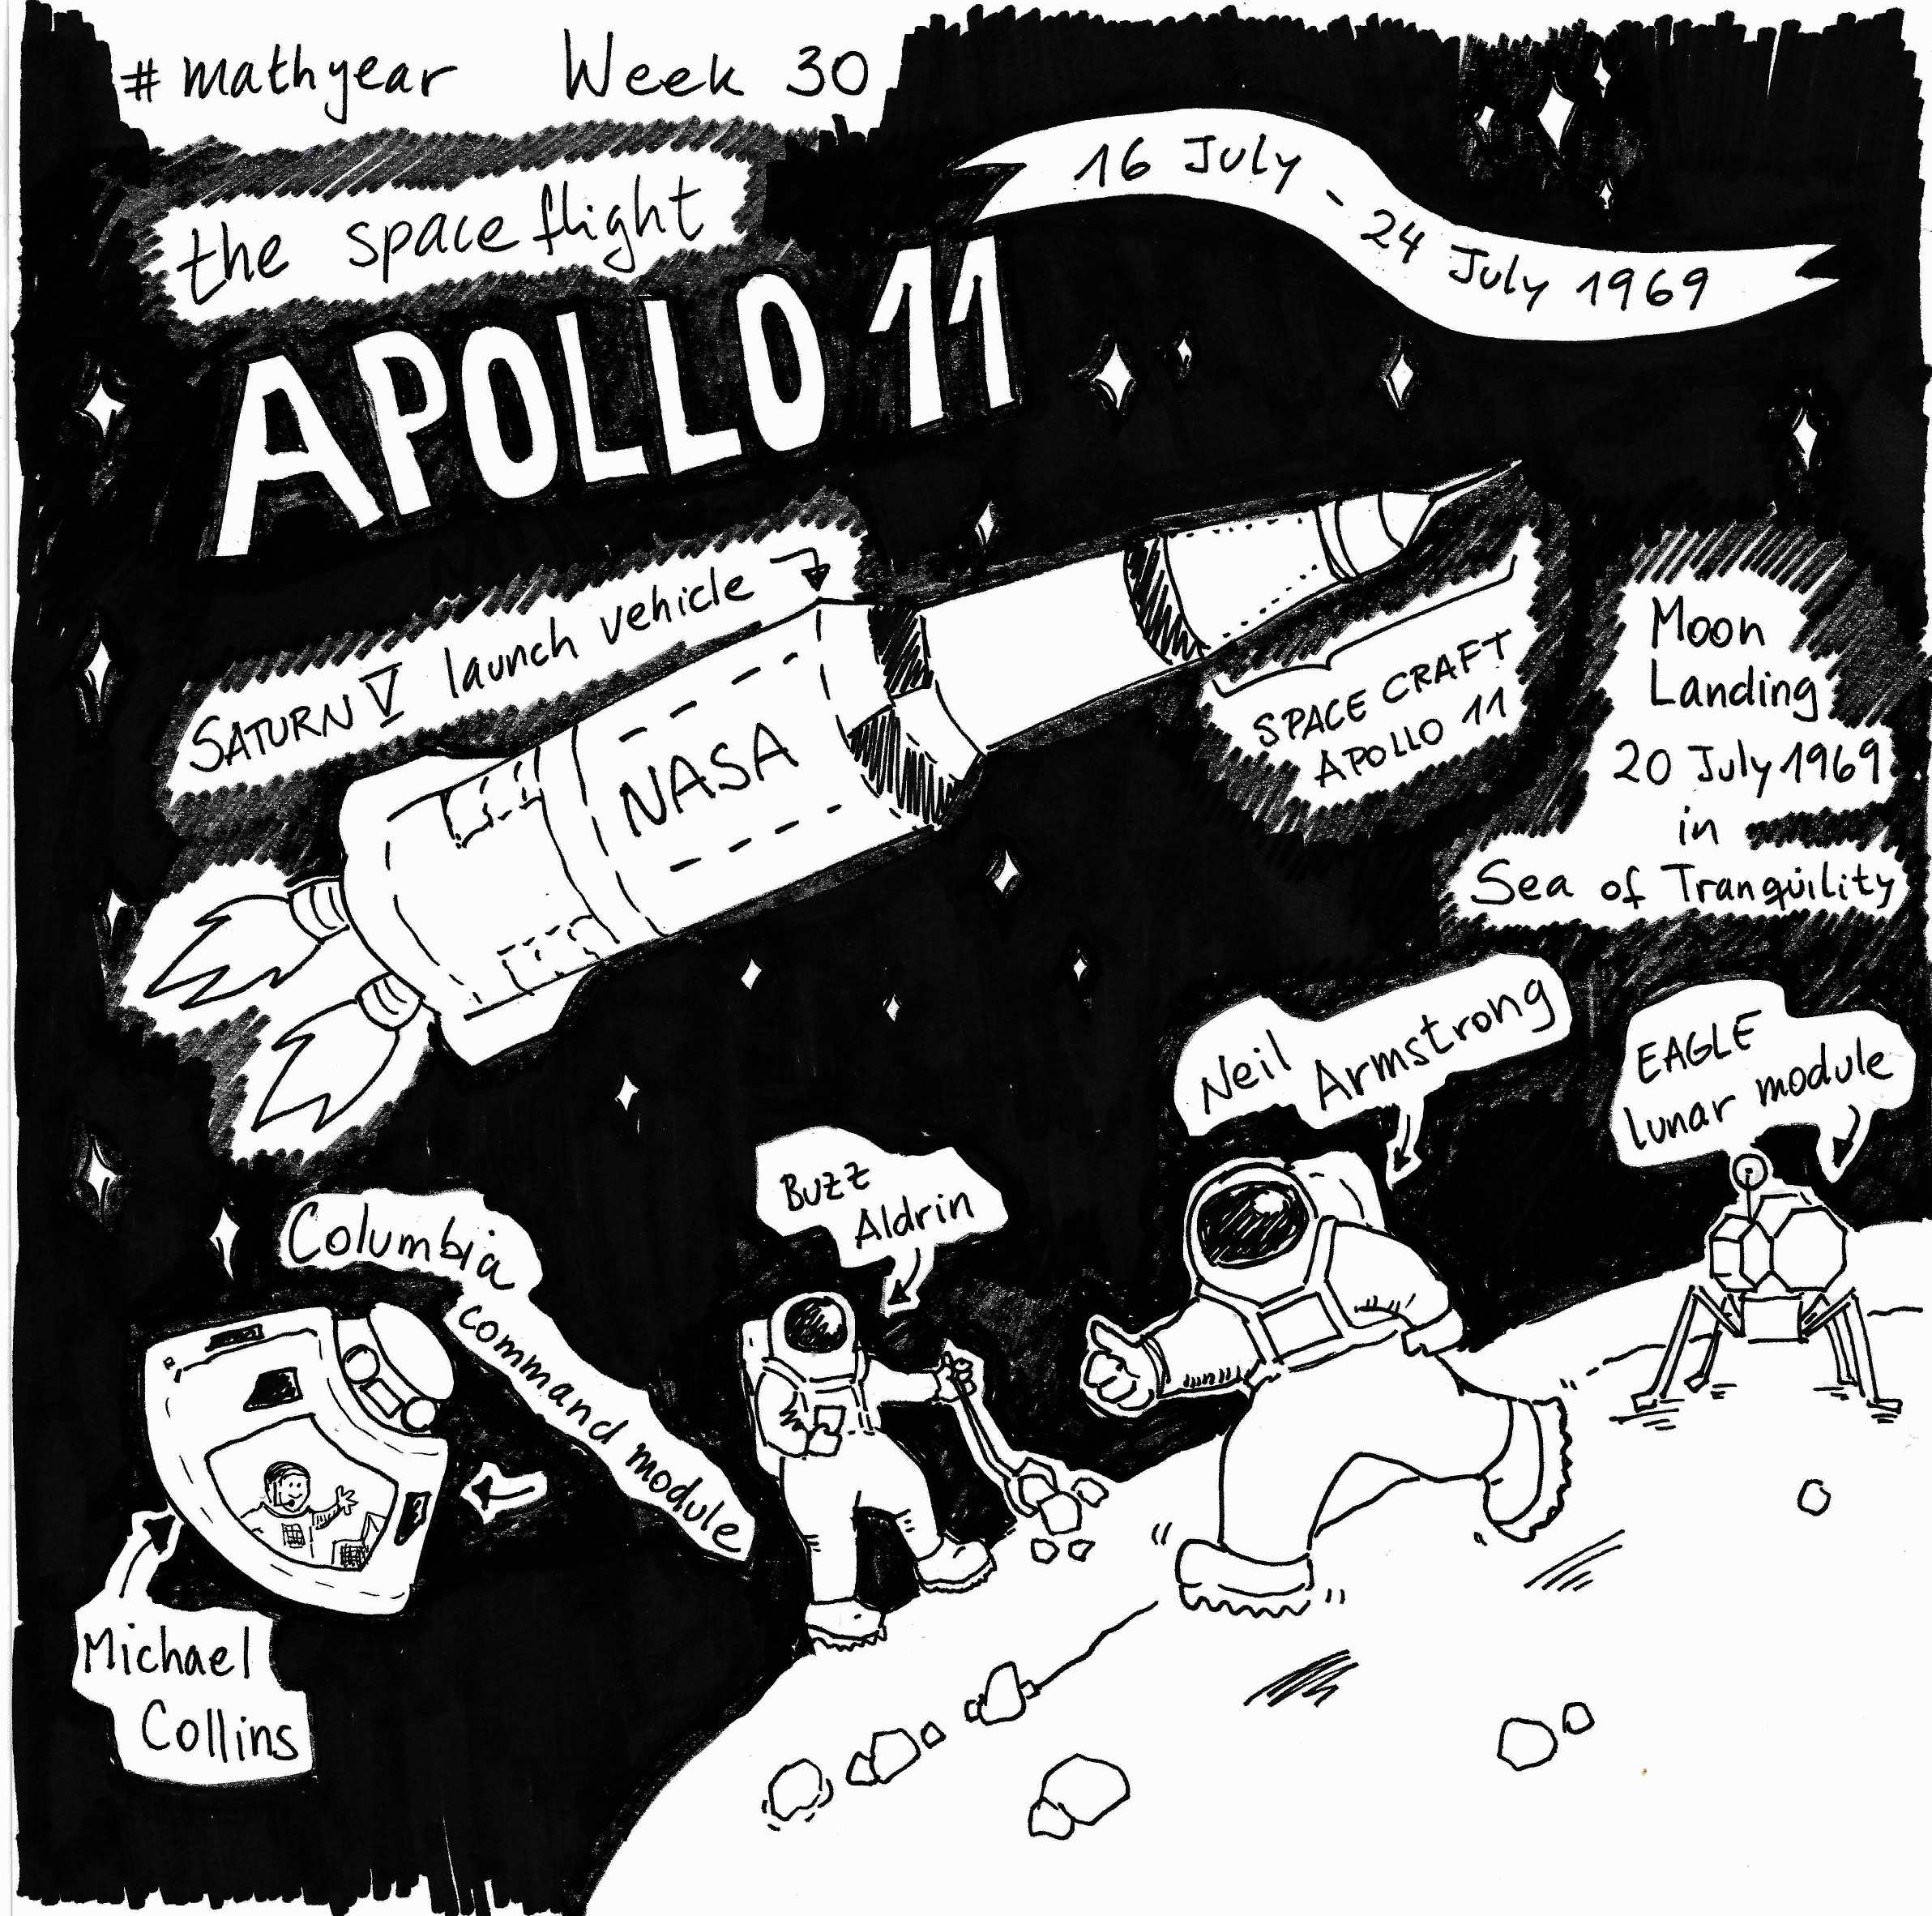 # mathyear Week 30
the spaceflight
APOLLO 11
16 July - 24 July 1969
SATURN V launch vehicle
NASA
SPACE CRAFT
APOLLO 11
Moon
Landing
20 July 1969
in
Sea of Tranquility
Neil
Armstrong
EAGLE
lunar module
Buzz
Aldrin
Columbia
command module
Michael
Collins